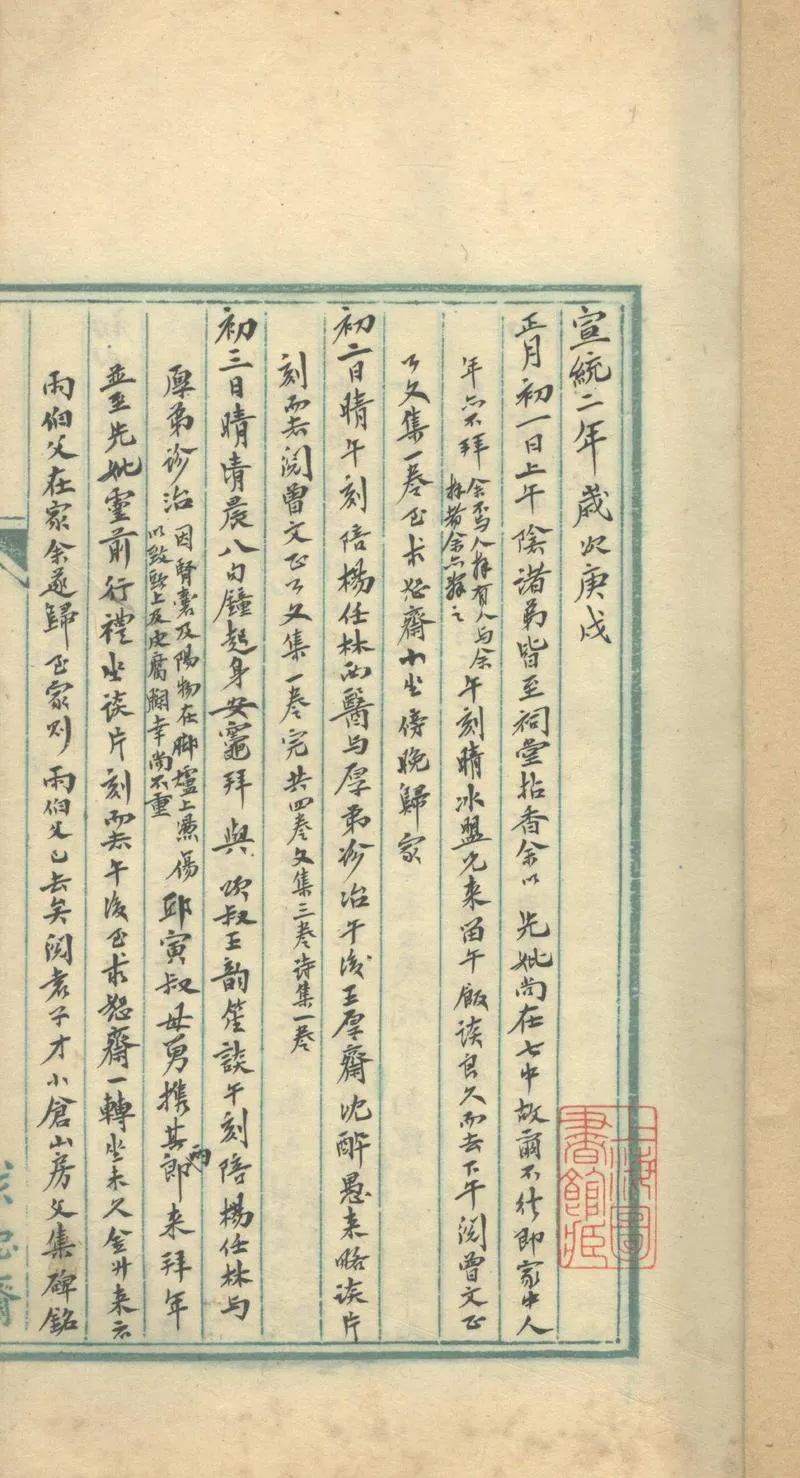 宣統二年歲次庚戌
正月初一日上午陰諸弟皆至祠堂拈香余以先妣尚在七中故爾不往即家中人
年亦不拜余不與人拜有人與余拜者余亦拜之午刻晴冰盟兄来留午飯談良久而去下午閱曾文正
公文集一卷至求恕齋小坐傍晚歸家
初二日晴午刻陪楊任林西醫与厚弟診治午後王厚齋沈醉愚来略談片
刻而去閱曾文正公文集一卷完共四卷文集三卷詩集一卷
初三日晴清晨八句鐘起身安竈拜與頌叔王韵笙談午刻陪楊任林与
厚弟診治因腎囊及陽物在脚爐上燙傷以致上及皮腐爛幸尚不重邱寅叔母舅攜其兩郎来拜年
並至先妣靈前行禮坐談片刻而去午後至求恕齋一轉坐未久金升来云
雨伯父在家余遂歸至家則雨伯父已去矣閱袁子才小倉山房文集碑銘
上海圖書館藏